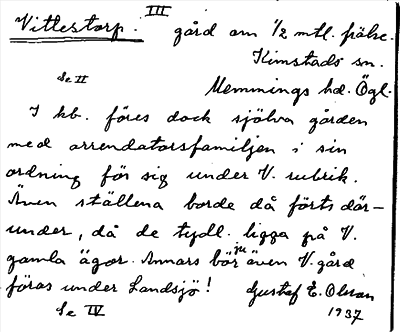 III
Vittestorp. gård om 1/2 mtl. frälse.
Kimstads sn.
Se II
Memmings hd. Ögl.
I kb. föres dock själva gården
med arrendatorsfamiljen i sin
ordning för sig under V. rubrik.
Även ställena borde då förts där-
under, då de tydl. ligga på V.
gamla ägor. Annars bör ju även V. gård
föras under Landsjö! Gustaf E. Olsson
Se IV 1937